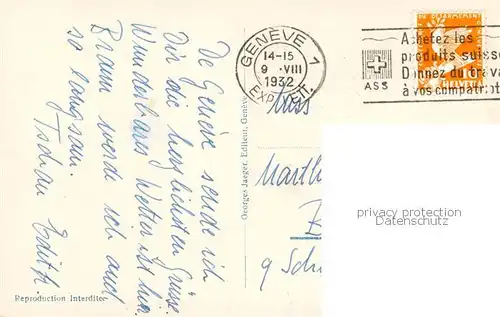 De Genève sende ich
Dir die herzlichsten Grüsse.
Wunderbares Wetter ist hier.
Braun werde ich auch
so langsam.
Tschau Edith
Reproduction Interdite
Georges Jaeger, Editeur, Genève
GENÈVE 1
14-15
9. VIII
1932
EXP. LETT.
DU DÉSARMEMENT
Achetez les
produits suisse
Donnez du trava
à vos compatriot
ASS
Miss
Marth
q Sch
privacy protection
Datenschutz